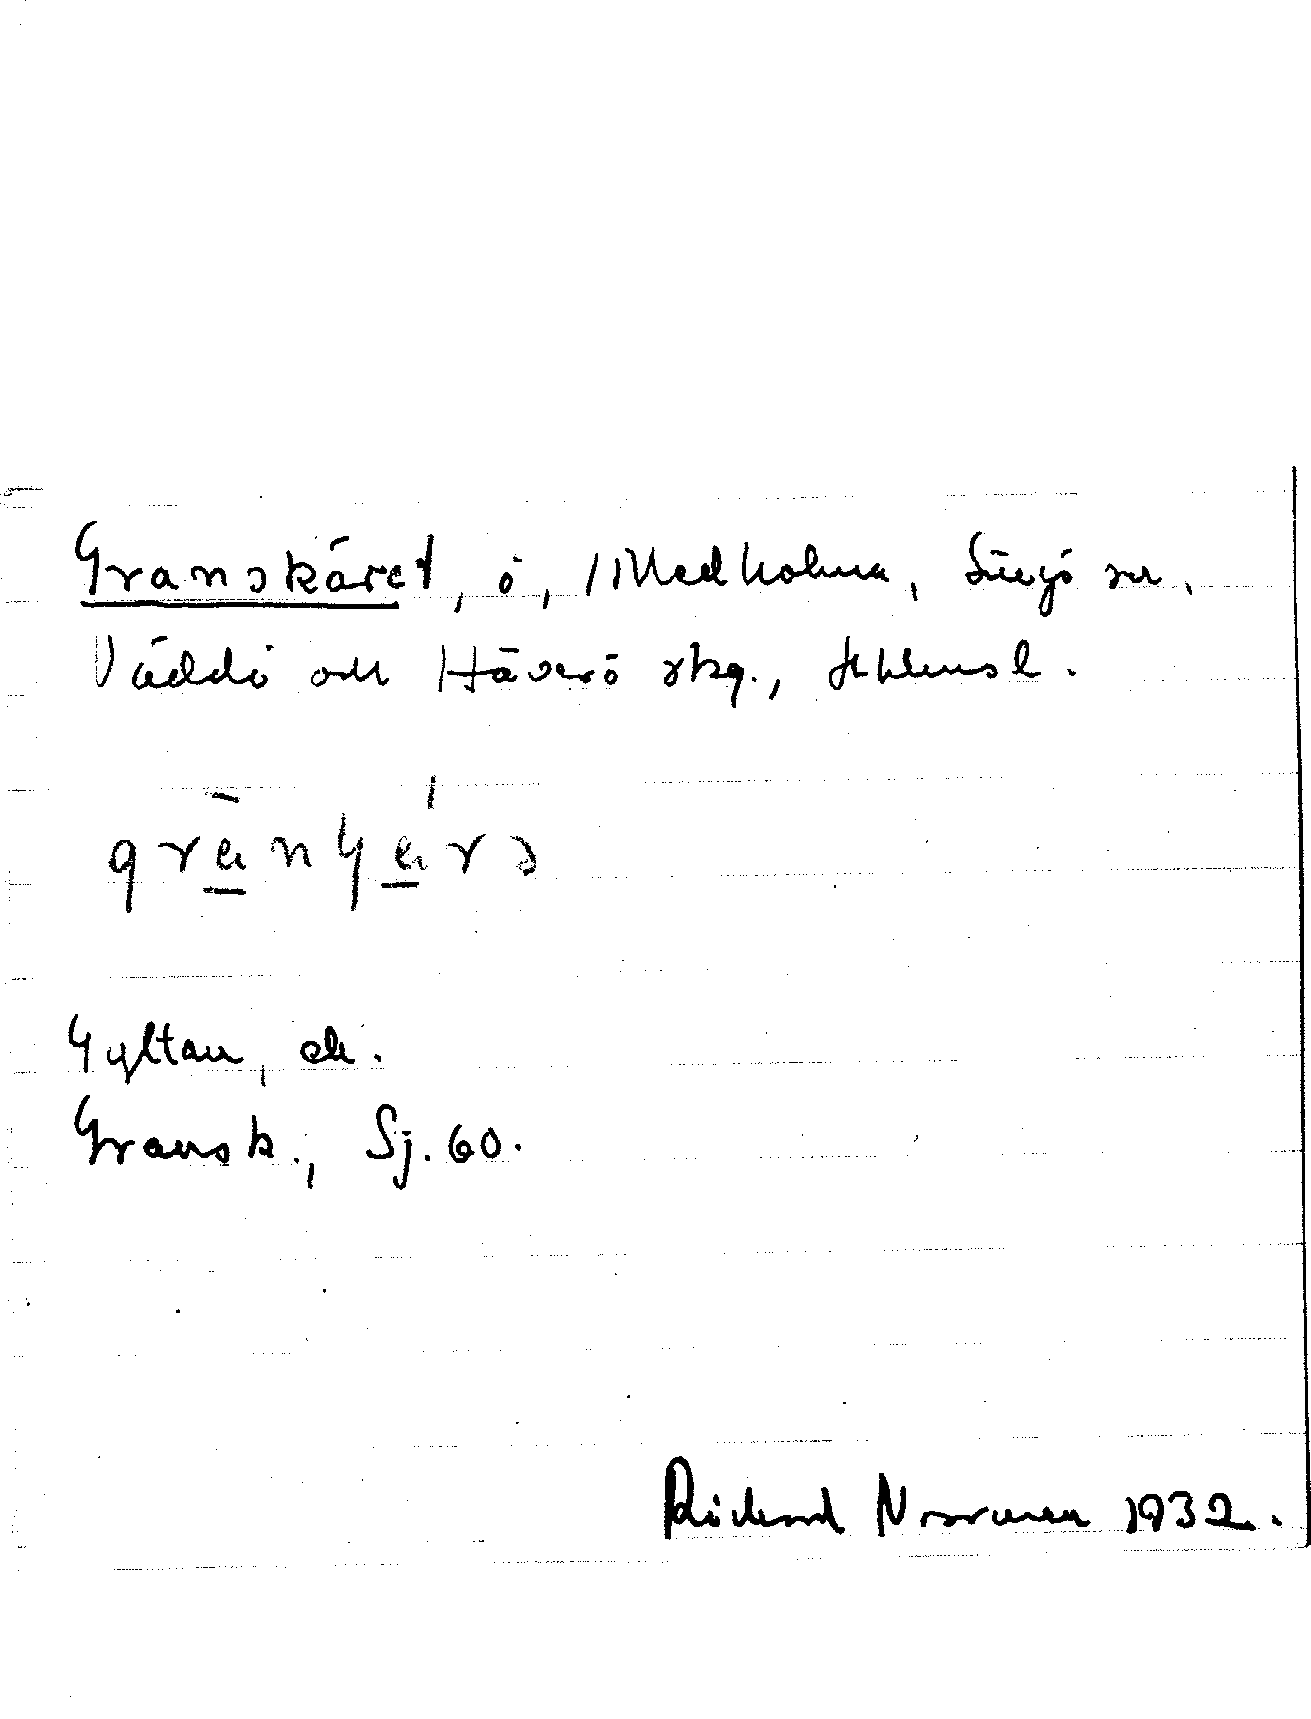 Granskäret, ö, Medholma, Singö sn,
Väddö och Häverö skg., Sthlms l.
Gyltan, ek.
Gransk., Sj. 60.
Rickard Norman 1932.